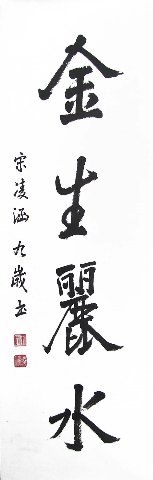 金生麗水
宋凌涵九歲書